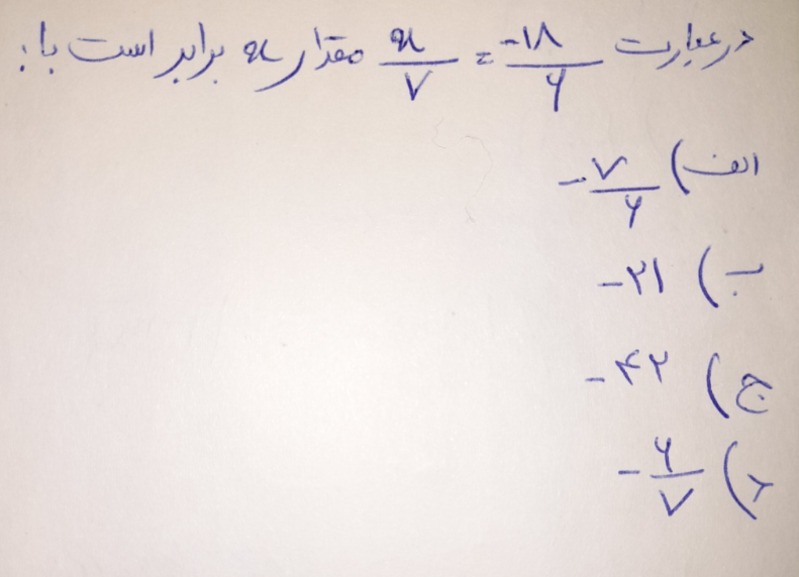 در عبارت -۱۸/۶ = x/۷ مقدار x برابر است با:
الف) -۷/۶
ب) -۲۱
ج) -۴۲
د) -۶/۷